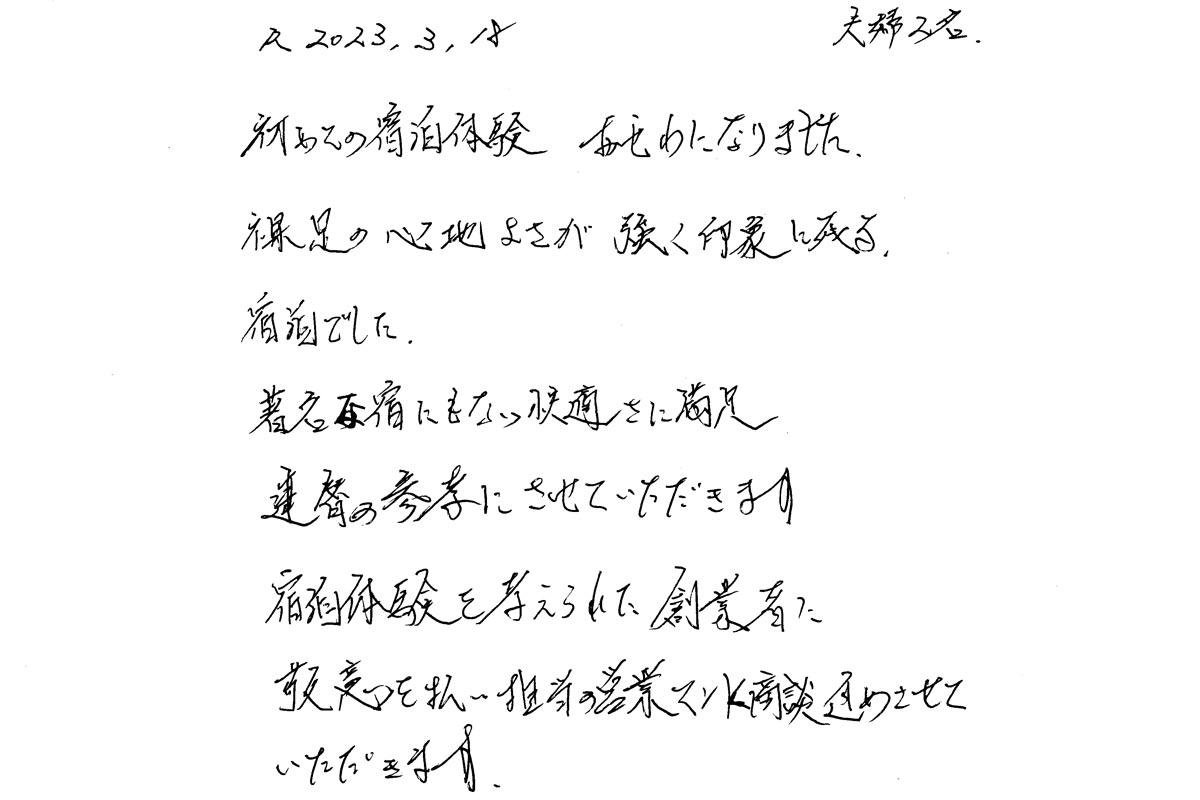 2023.3.18 夫婦2名.
初めての宿泊体験 おせわになりました.
裸足の心地よさが 強く印象に残る.
宿泊でした.
著名な宿にもない快適さに満足
の参考にさせていただきます
宿泊体験を考えられた創業者に
敬意を払い担当の営業マンと商談進めさせて
いただきます.